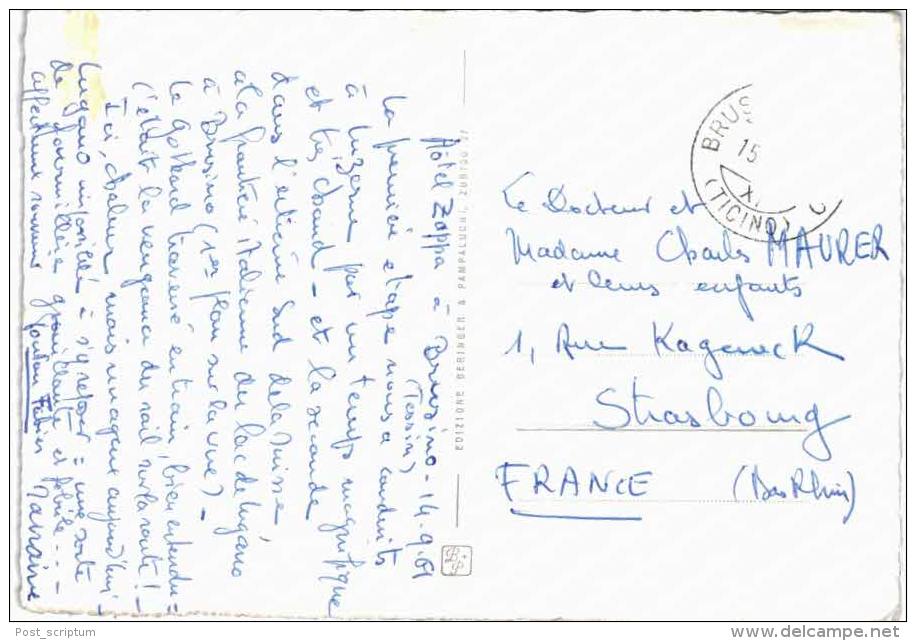 Hôtel Zappa à Brusino - 14.9.69
(Tessin)
La première étape nous a conduits
à Luzerne par un temps magnifique
et très chaud - et la seconde
dans l'extrême Sud de la Suisse
à la frontière italienne du lac de Lugano
à Brusino (1er plan sur la vue) -
Le Gothard traversé en train, bien entendu =
(c'était la vengeance du rail sur la route! -
Ici, chaleur mais nuageux aujourd'hui -
Lugano impossible à s'y garer = une sorte
de fourmilière grouillante et fébrile... -
affectueux souvenir Marraine
EDIZIONE BERINGER & PAMPALUCHI, ZURIGO
BP
BRUS
15
XI
(TICINO)
Le Docteur et
Madame Charles MAURER
et leurs enfants
1, Rue Kageneck
Strasbourg
FRANCE (Bas Rhin)
Post_scriptum
www.delcampe.net